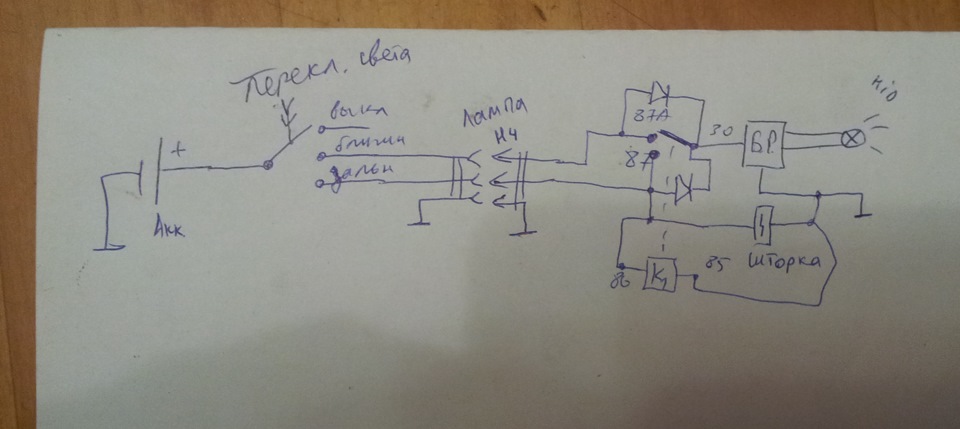 Перекл. света
выкл
ближн
дальн
+
Акк
Лампа
H4
87А
87
30
БР
Hid
86
К1
85
шторка